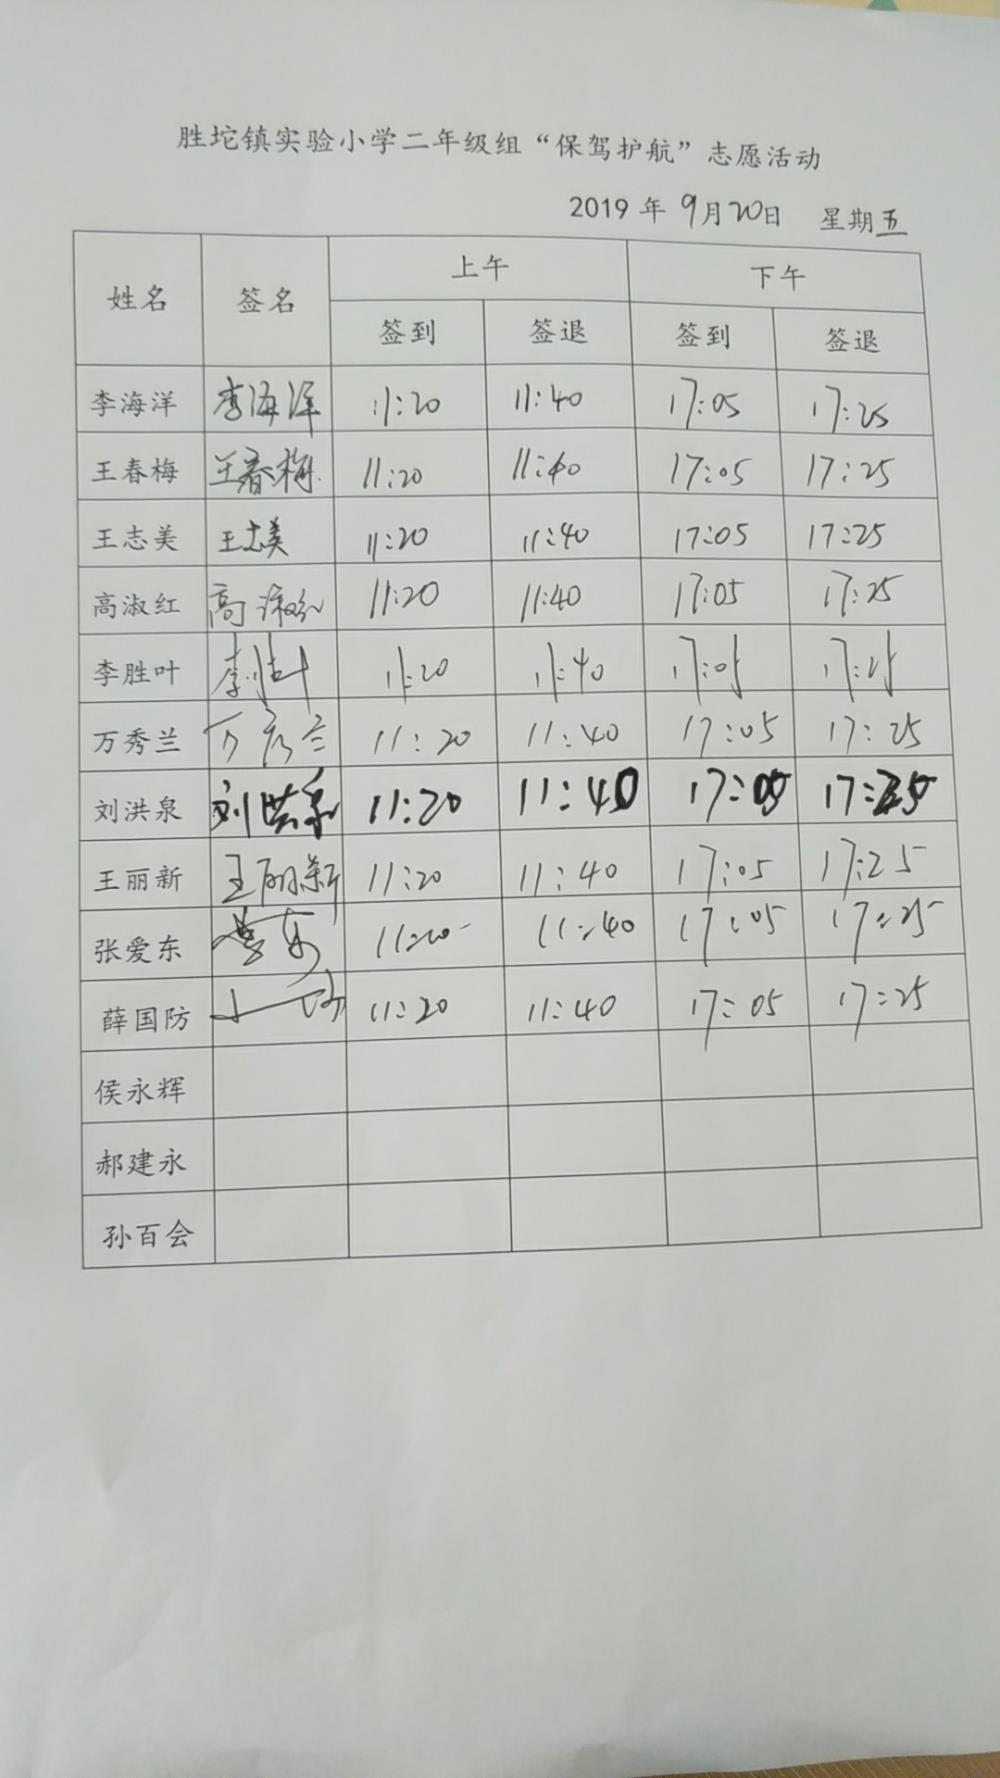 胜坨镇实验小学二年级组“保驾护航”志愿活动
2019 年 9月20日 星期五
姓名 签名 上午 下午
签到 签退 签到 签退
李海洋 李海洋 11:20 11:40 17:05 17:25
王春梅 王春梅 11:20 11:40 17:05 17:25
王志美 王志美 11:20 11:40 17:05 17:25
高淑红 高淑红 11:20 11:40 17:05 17:25
李胜叶 李胜叶 11:20 11:40 17:05 17:25
万秀兰 万秀兰 11:20 11:40 17:05 17:25
刘洪泉 刘洪泉 11:20 11:40 17:05 17:25
王丽新 王丽新 11:20 11:40 17:05 17:25
张爱东 11:20 11:40 17:05 17:25
薛国防 11:20 11:40 17:05 17:25
侯永辉
郝建永
孙百会